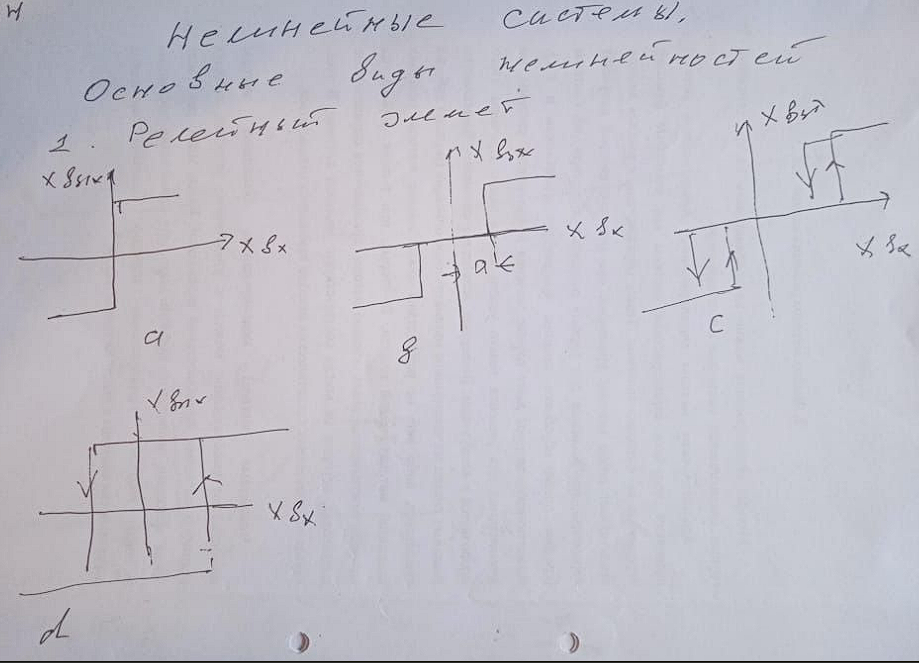 Н
Нелинейные системы.
Основные виды нелинейностей
1. Релейный элемет
X вых
X вх
a
X вых
X вх
a
в
X вых
X вх
c
X вых
X вх
d